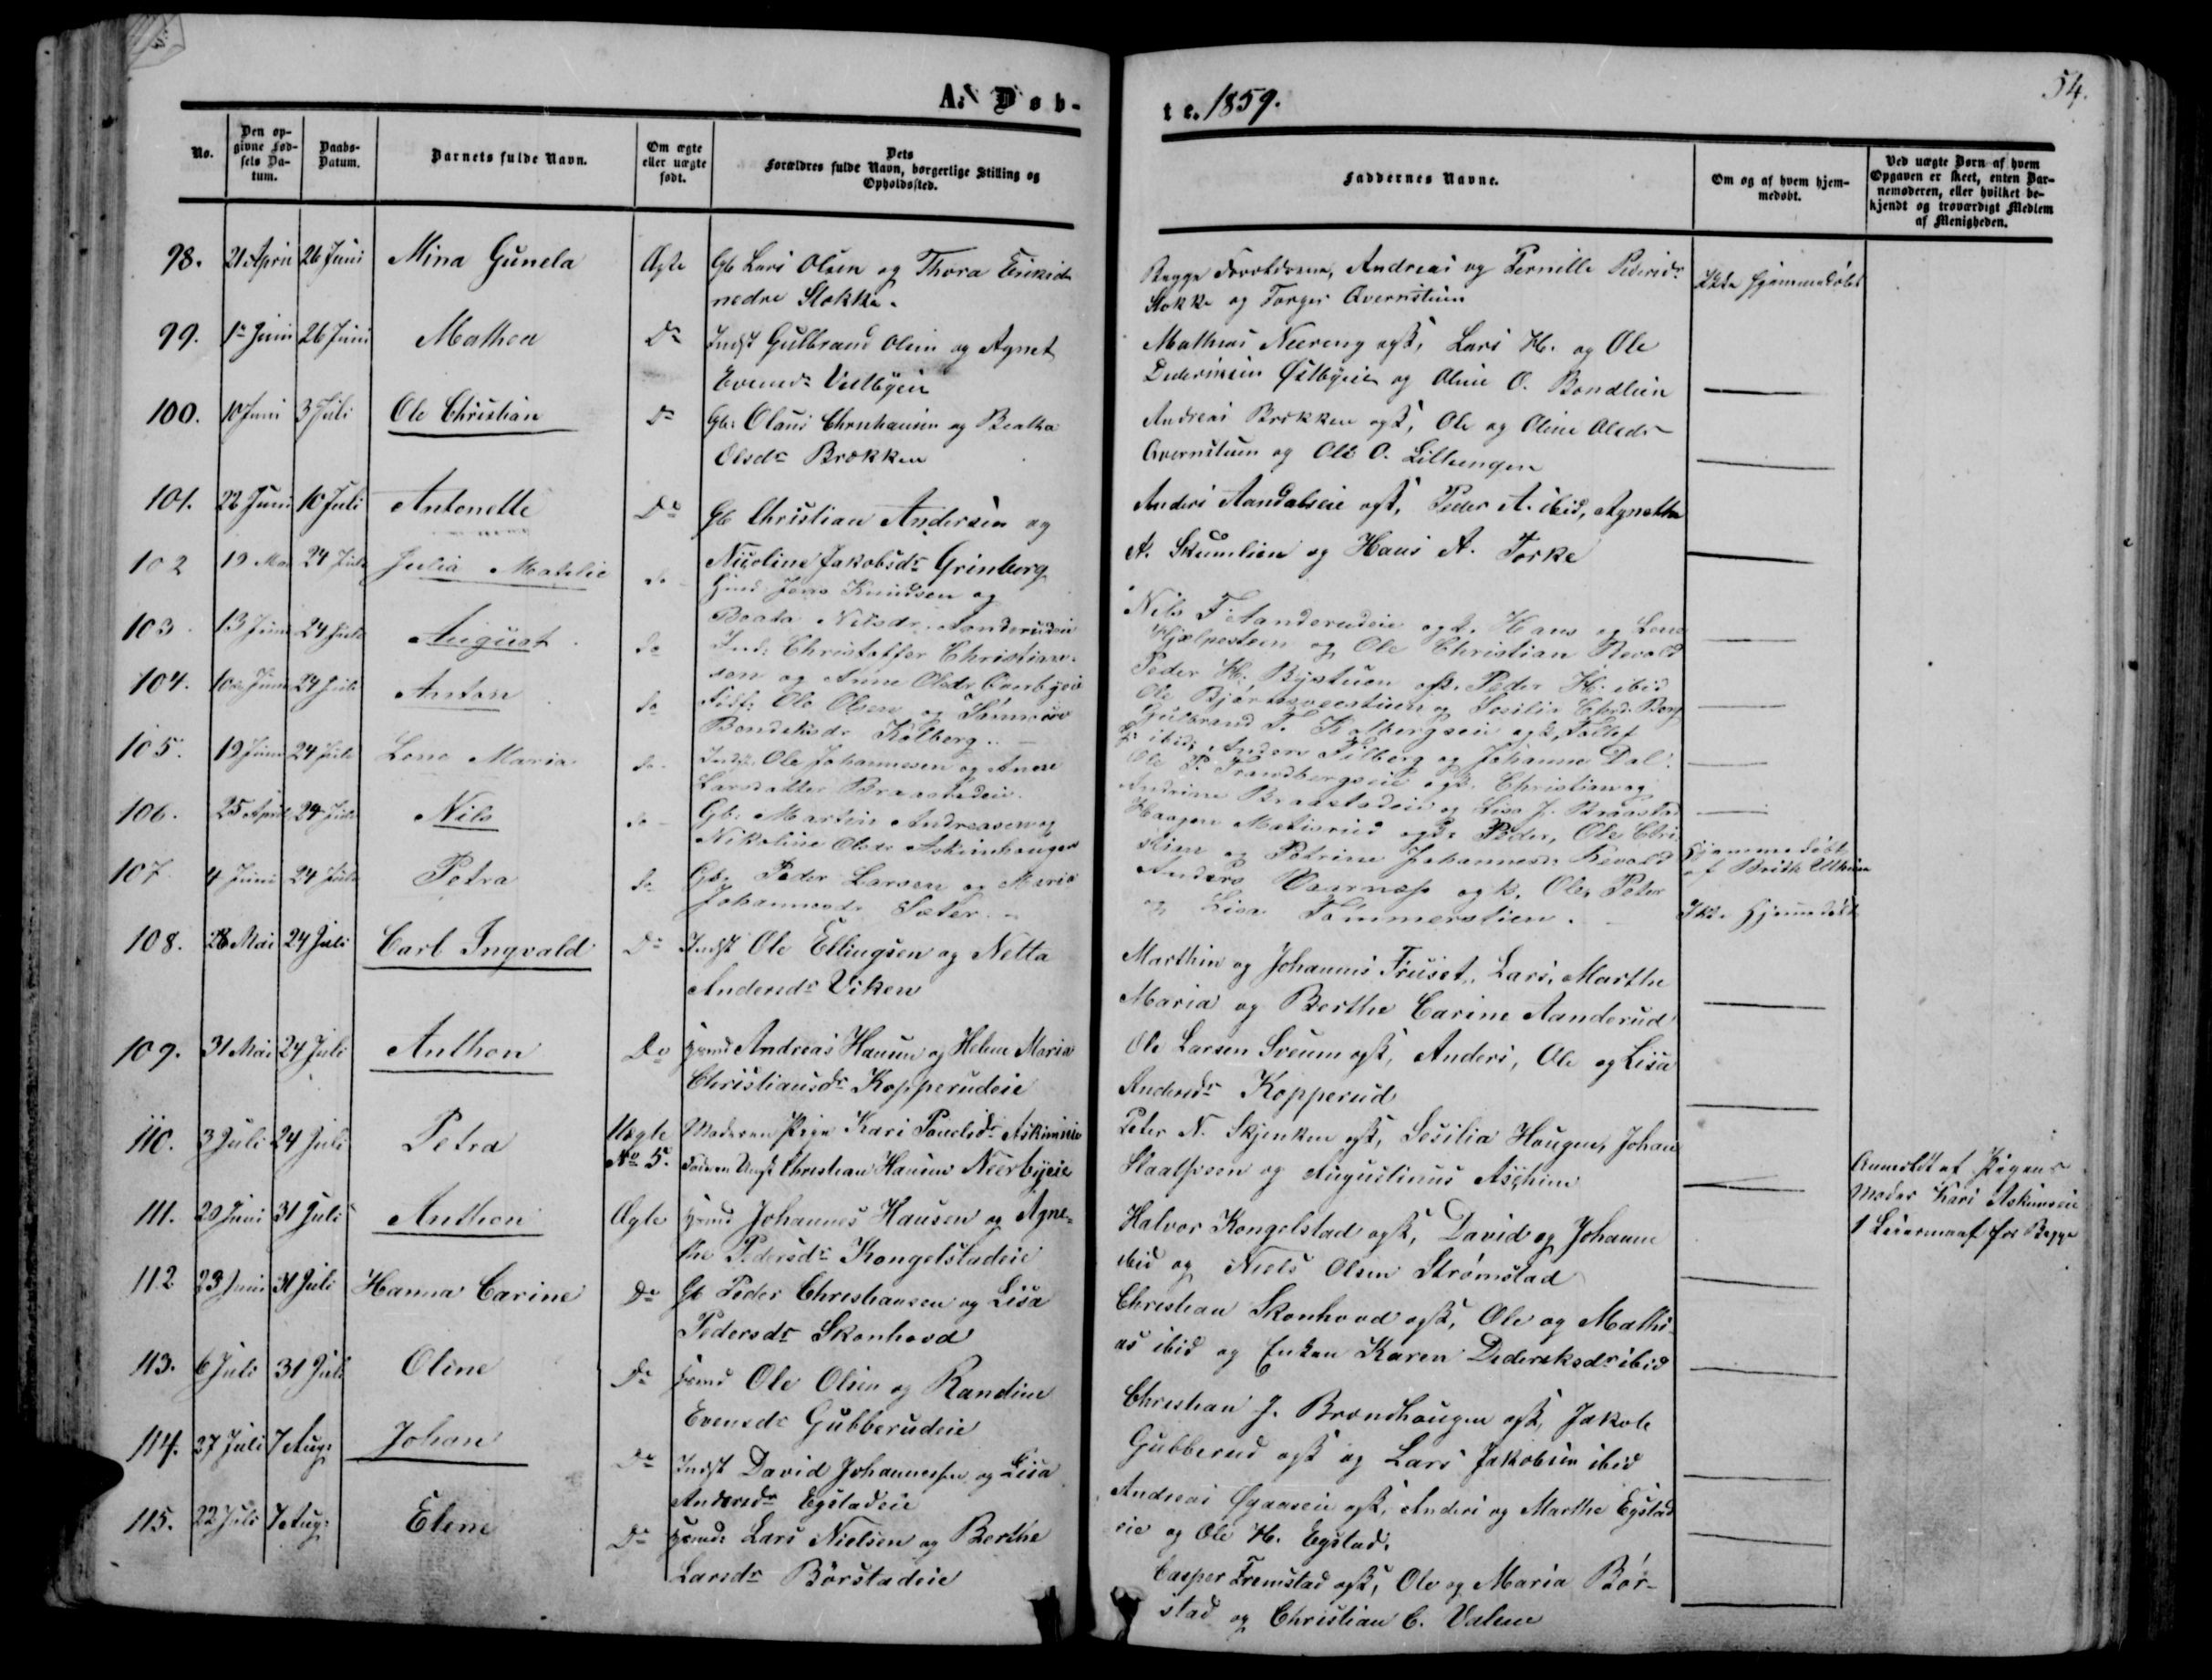 A. Døb-
te. 1859.
54.
No.
Den op-
givne Fød-
sels Da-
tum.
Daabs-
Datum.
Barnets fulde Navn.
Om ægte
eller uægte
født.
Dets
Forældres fulde Navn, borgerlige Stilling og
Opholdssted.
Faddernes Navne.
Om og af hvem hjem-
medøbt.
Ved uægte Børn af hvem
Opgaven er skeet, enten Bar-
nemoderen, eller hvilket be-
kjendt og troværdigt Medlem
af Menigheden.
98. 21 April 26 Juni Mina Gunela Ægte Gb Lars Olsen og Thora Eriksdr
nedre Stokke.
Begge Forældrene, Andreas og Pernille Pedersdr
Stokke og Torger Qvernstuen
Ikke hjemmedøbt
99. 1ste Juni 26 Juni Mathea Do Indst Gulbrand Olsen og Agnet
Evensdr Vestbyeie
Mathias Neereng ogst, Lars H. og Ole
Østbyeie og Oline O. Bondlien
100. 10 Juni 3 Juli Ole Christian Do Gb: Olaus Christiansen og Beatha
Olsdr Brækken
Andreas Brækken ogst, Ole og Oline Olsdr
Qvernstuen og Ole O. Lillungen
101. 22 Juni 10 Juli Antonette Do Gb Christian Andersen og
Nicoline Jakobsdr Grinberg
Anders Aandalseie ogst, Peder A. ibid, Agnethe
A. Skumlien og Hans A. Torke
102 19 Mai 24 Juli Julia Matelie do Hmd Jens Knudsen og
Beata Nilsdr. Aanderudeie
Nils T. Aanderudeie ogst. Hans og Lene
Hjelpesteen og Ole Christian Revold
103. 13 Juni 24 Juli August do Ind: Christoffer Christian-
sen og Anne Olsdr Overbyeie
Peder H. Bystuen ogst. Peder H. ibid
Ole og Sesilie Chrd. Borg
104. 10de Juni 24 Juli Anton do Ole Olsen og
Kolberg.
Gulbrand T. Kolbergseie ogst, Tollef
ibid, Anders Filberg og Johanne Dal.
105. 19 Juni 24 Juli Lene Maria do Inds: Ole Johannesen og Anne
Larsdatter Braastadeie.
Ole P. Trandbergseie ogst. Christian og
Andrine Braastadeie og Lisa J. Braastad
106. 25 April 24 Juli Nils do Gb: Martin Andreasen og
Nikoline Olsdr Askimhaugen
Haagen Matisrud ogst. Peder, Ole Chri-
stian og Petrine Johannesdr Revold
Hjemmedøbt
af
107. 4 Juni 24 Juli Petra do Gb. Peder Larsen og Maria
Johannesdr Sæter.
Anders ogst. Ole, Peter
og Lisa Tømmerstien.
Ikke hjemmedøbt
108. 28 Mai 24 Juli Carl Ingvald Do Indst Ole Ellingsen og Netta
Andersdr Viken
Marthin og Johannes Fruset, Lars, Marthe
Maria og Berthe Carine Aanderud
109. 31 Mai 24 Juli Anthon Do Hmd Andreas Hansen og Helene Maria
Christiansdr Kopperudeie
Ole Larsen Sveum ogst, Anders, Ole og Lisa
Andersdr Kopperud
110. 3 Juli 24 Juli Petra Uægte
No 5.
Moderen Pige Kari Askimeie
Faderen Ungk Christian Hansen Neerbyeie
Peter N. Skjenken ogst, Sesilia Haugen, Johan
og Augustinus Aschim
Anmeldt af Pigens
Moder Kari Askimseie
1 Leiermaal for Begge
111. 20 Juni 31 Juli Anthon Ægte Hmd Johannes Hansen og Agne-
the Pedersdr Kongelstadeie
Halvor Kongelstad ogst, David og Johanne
ibid og Niels Olsen Strømstad
112 23 Juni 31 Juli Hanna Carine Do Gb Peder Christiansen og Lisa
Pedersdr Skonhovd
Christian Skonhovd ogst, Ole og Mathi-
as ibid og Enken Karen Dideriksdr ibid
113. 6 Juli 31 Juli Oline Do Hmd Ole Olsen og Randine
Evensdr Gubberudeie
Christian J. Brændhaugen ogst, Jakob
Gubberud ogst og Lars Jakobsen ibid
114. 27 Juli 7 Aug: Johan Do Indst David Johannessen og Lisa
Andersdr Egstadeie
Andreas ogst, Anders og Marthe Egstad
eie og Ole H. Egstad.
115. 22 Juli 7 Aug: Eline Do Hmd: Lars Nielsen og Berthe
Larsdr Børstadeie
Casper Fremstad ogst, Ole og Maria Bør-
stad og Christian C. Valene